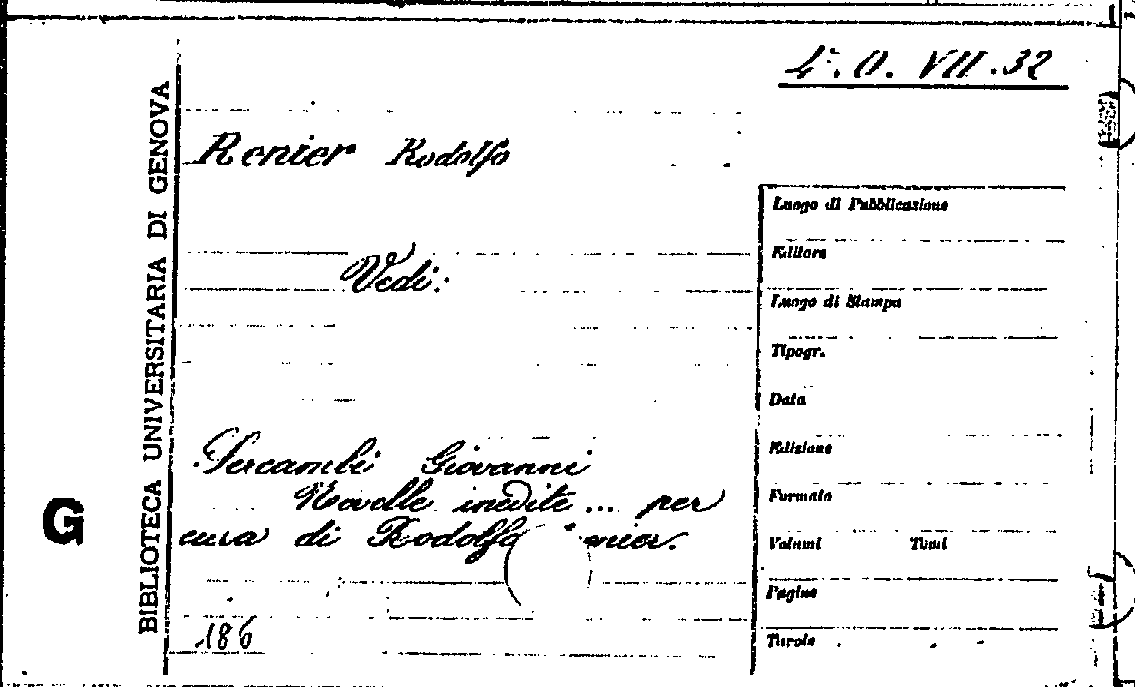 4°. O. VII. 32
BIBLIOTECA UNIVERSITARIA DI GENOVA
Renier Rodolfo
Vedi:
Sercambi Giovanni
Novelle inedite ... per
cura di Rodolfo
G
186
Luogo di Pubblicazione
Editore
Luogo di Stampa
Tipogr.
Data
Edizione
Formato
Volumi Tomi
Pagine
Tavole